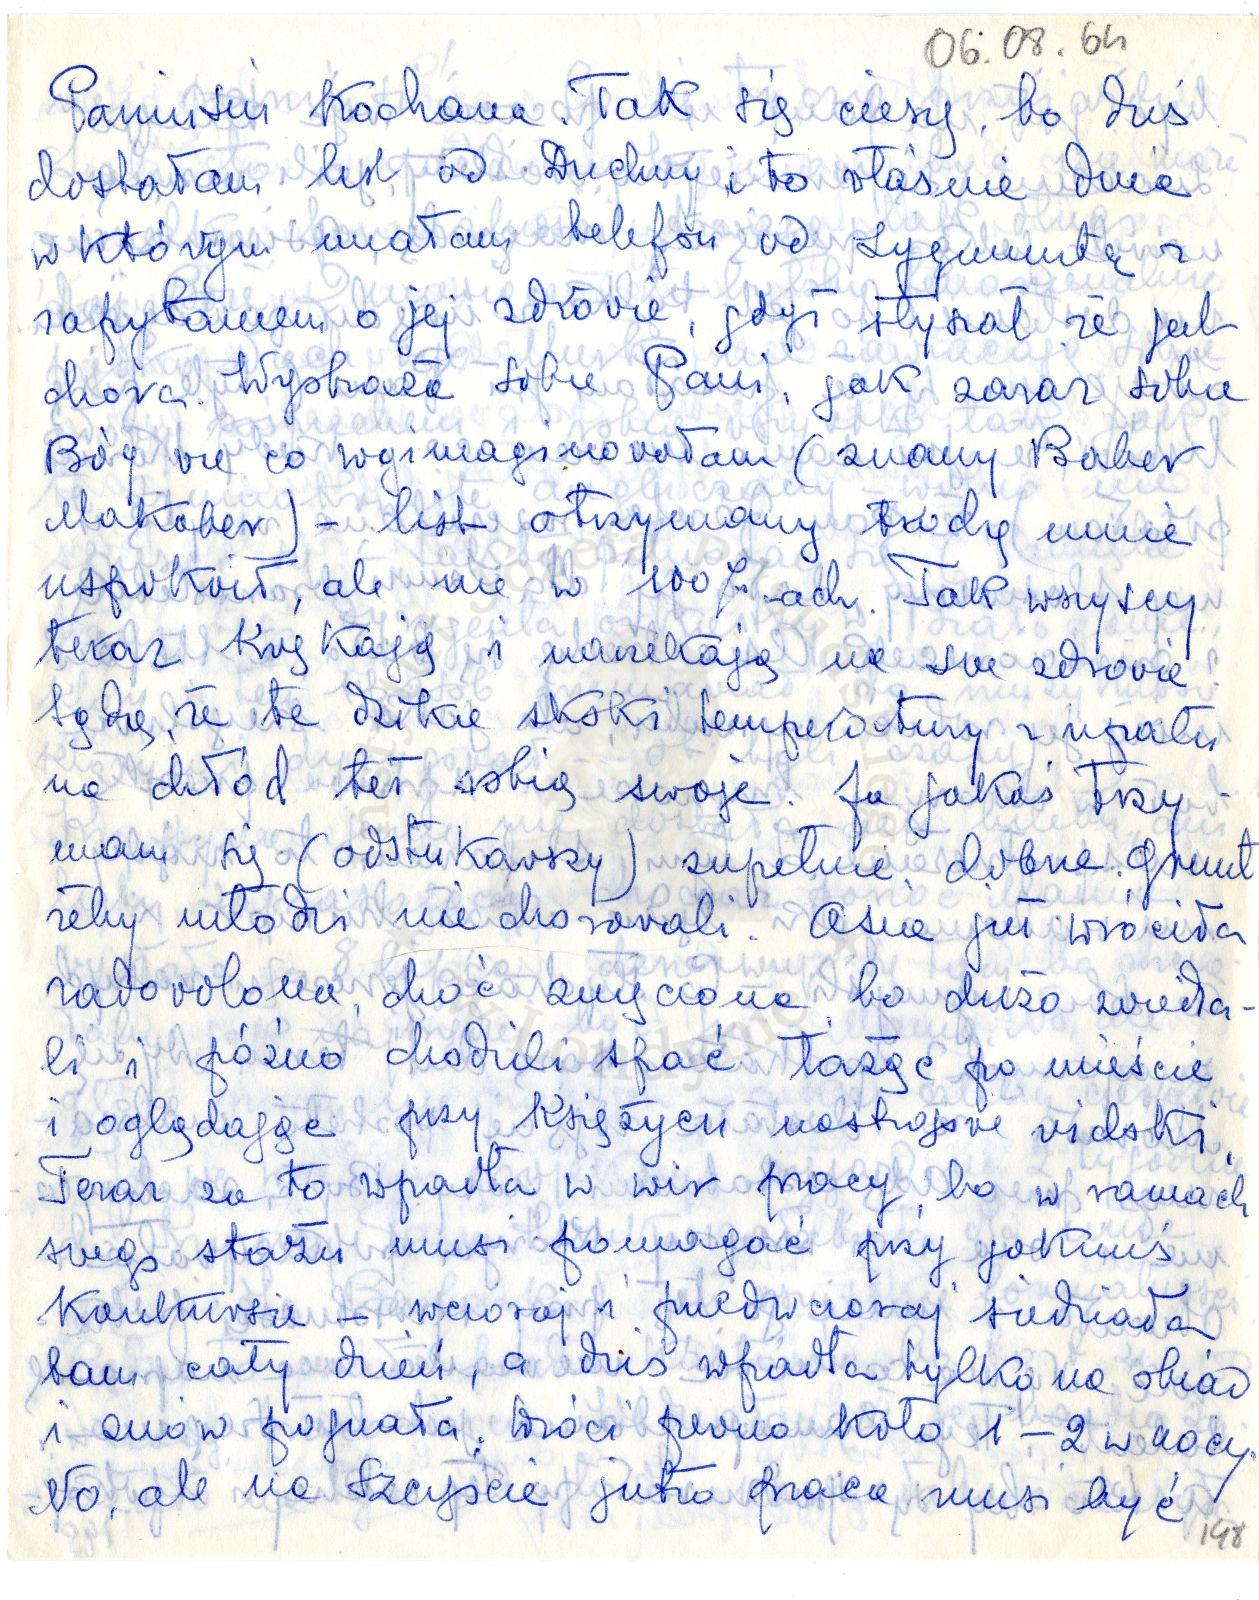 06.08.64
Paniusiu Kochana. Tak się cieszę, bo dziś
dostałam list od Duchny i to właśnie dnia
w którym miałam telefon od Zygmunta z
zapytaniem o jej zdrowie, gdyż słyszał że jest
chora. Wyobraża sobie Pani, jak zaraz sobie
Bóg wie co wyimaginowałam (znany Baber
Makaber) – list otrzymany trochę mnie
uspokoił, ale nie w 100%-ach. Tak wszyscy
teraz kwękają i narzekają na swe zdrowie.
Sądzę, że te dzikie skoki temperatury z upału
na chłód też robią swoje. Ja jakoś trzy-
mam się (odstukawszy) zupełnie dobrze. Grunt
żeby młodzi nie chorowali. Asia już wróciła
zadowolona, choć zmęczona bo dużo zwiedza-
li i późno chodzili spać łażąc po mieście
i oglądając przy księżycu nastrojowe widoki.
Teraz za to wpadła w wir pracy, bo w ramach
swego stażu musi pomagać przy jakimś
konkursie – wczoraj i przedwczoraj siedziała
tam cały dzień, a dziś wpadła tylko na obiad
i znów pognała. Wróci pewno koło 1–2 w nocy.
No, ale na szczęście jutro praca musi być
198